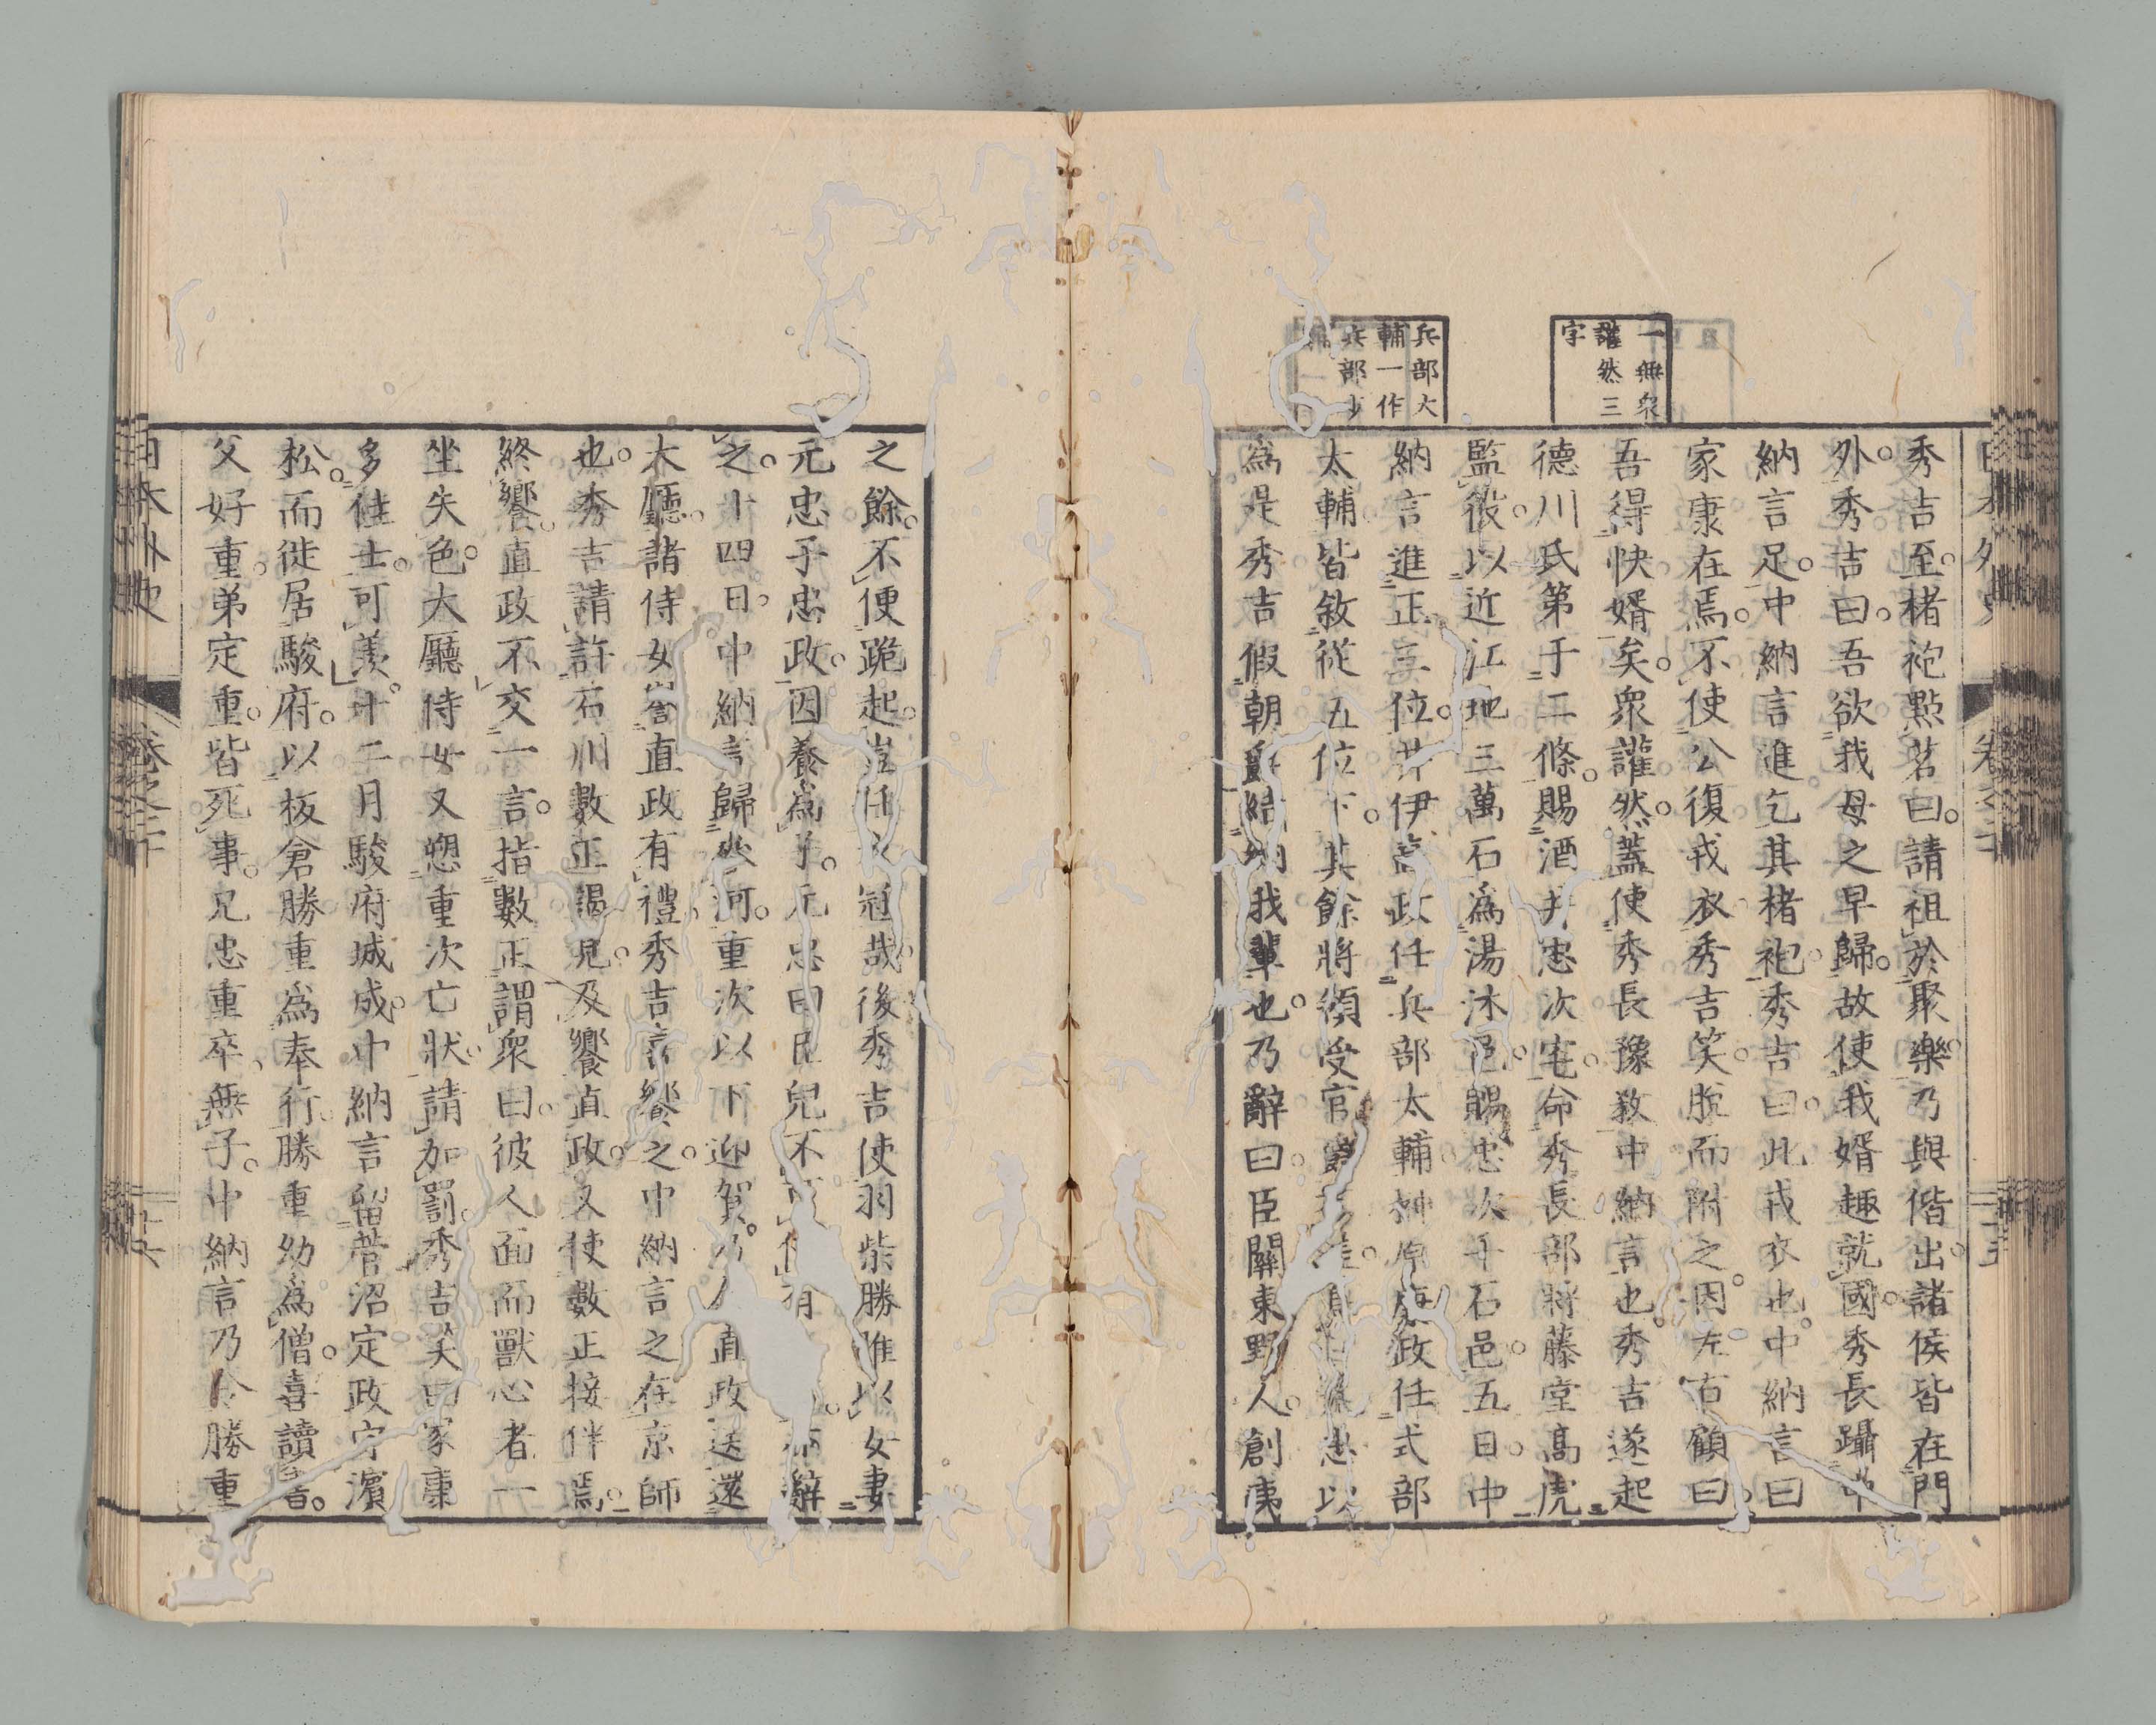 日本外史 卷之二十
一無衆
讙然三
字
兵部大
輔一作
兵部少
秀吉至楮袍點茗曰請徂於聚樂乃與偕出諸侯皆在門
外秀吉曰吾欲我母之早歸故使我婿趣就國秀長躡中
納言足中納言進乞其楮袍秀吉曰此我戎衣也中納言曰
家康在焉不使公復戎衣秀吉笑脫而附之因左右顧曰
吾得快婿矣衆讙然蓋使秀長豫敎中納言也秀吉遂起
德川氏第于二條賜酒井忠次宅命秀長部將藤堂高虎
監役以近江地三萬石爲湯沐邑賜忠次千石邑五日中
納言進正三位井伊直政任兵部太輔榊原康政任式部
太輔皆敘從五位下其餘將領受官爵 忠以
爲是秀吉假朝爵結納我輩也乃辭曰臣關東野人創痍
之餘不便跪起豈任衣冠哉後秀吉使羽柴勝雅以女妻
元忠子忠政因養爲子元忠曰臣兒不可使有 辭
之十四日中納言歸參河重次以下迎賀乃 直政送還
大廳諸侍女嘗直政有禮秀吉言饗之中納言之在京師
也秀吉請許石川數正謁見及饗直政又使數正接伴焉
終饗直政不交一言指數正謂衆曰彼人面而獸心者一
坐失色大廳侍女又愬重次亡狀請加罰秀吉笑曰家康
多佳士可羨十二月駿府城成中納言留菅沼定政守濱
松而徙居駿府以板倉勝重爲奉行勝重幼爲僧喜讀書
父好重弟定重皆死事兄忠重卒無子中納言乃令勝重
日本外史 卷之二十